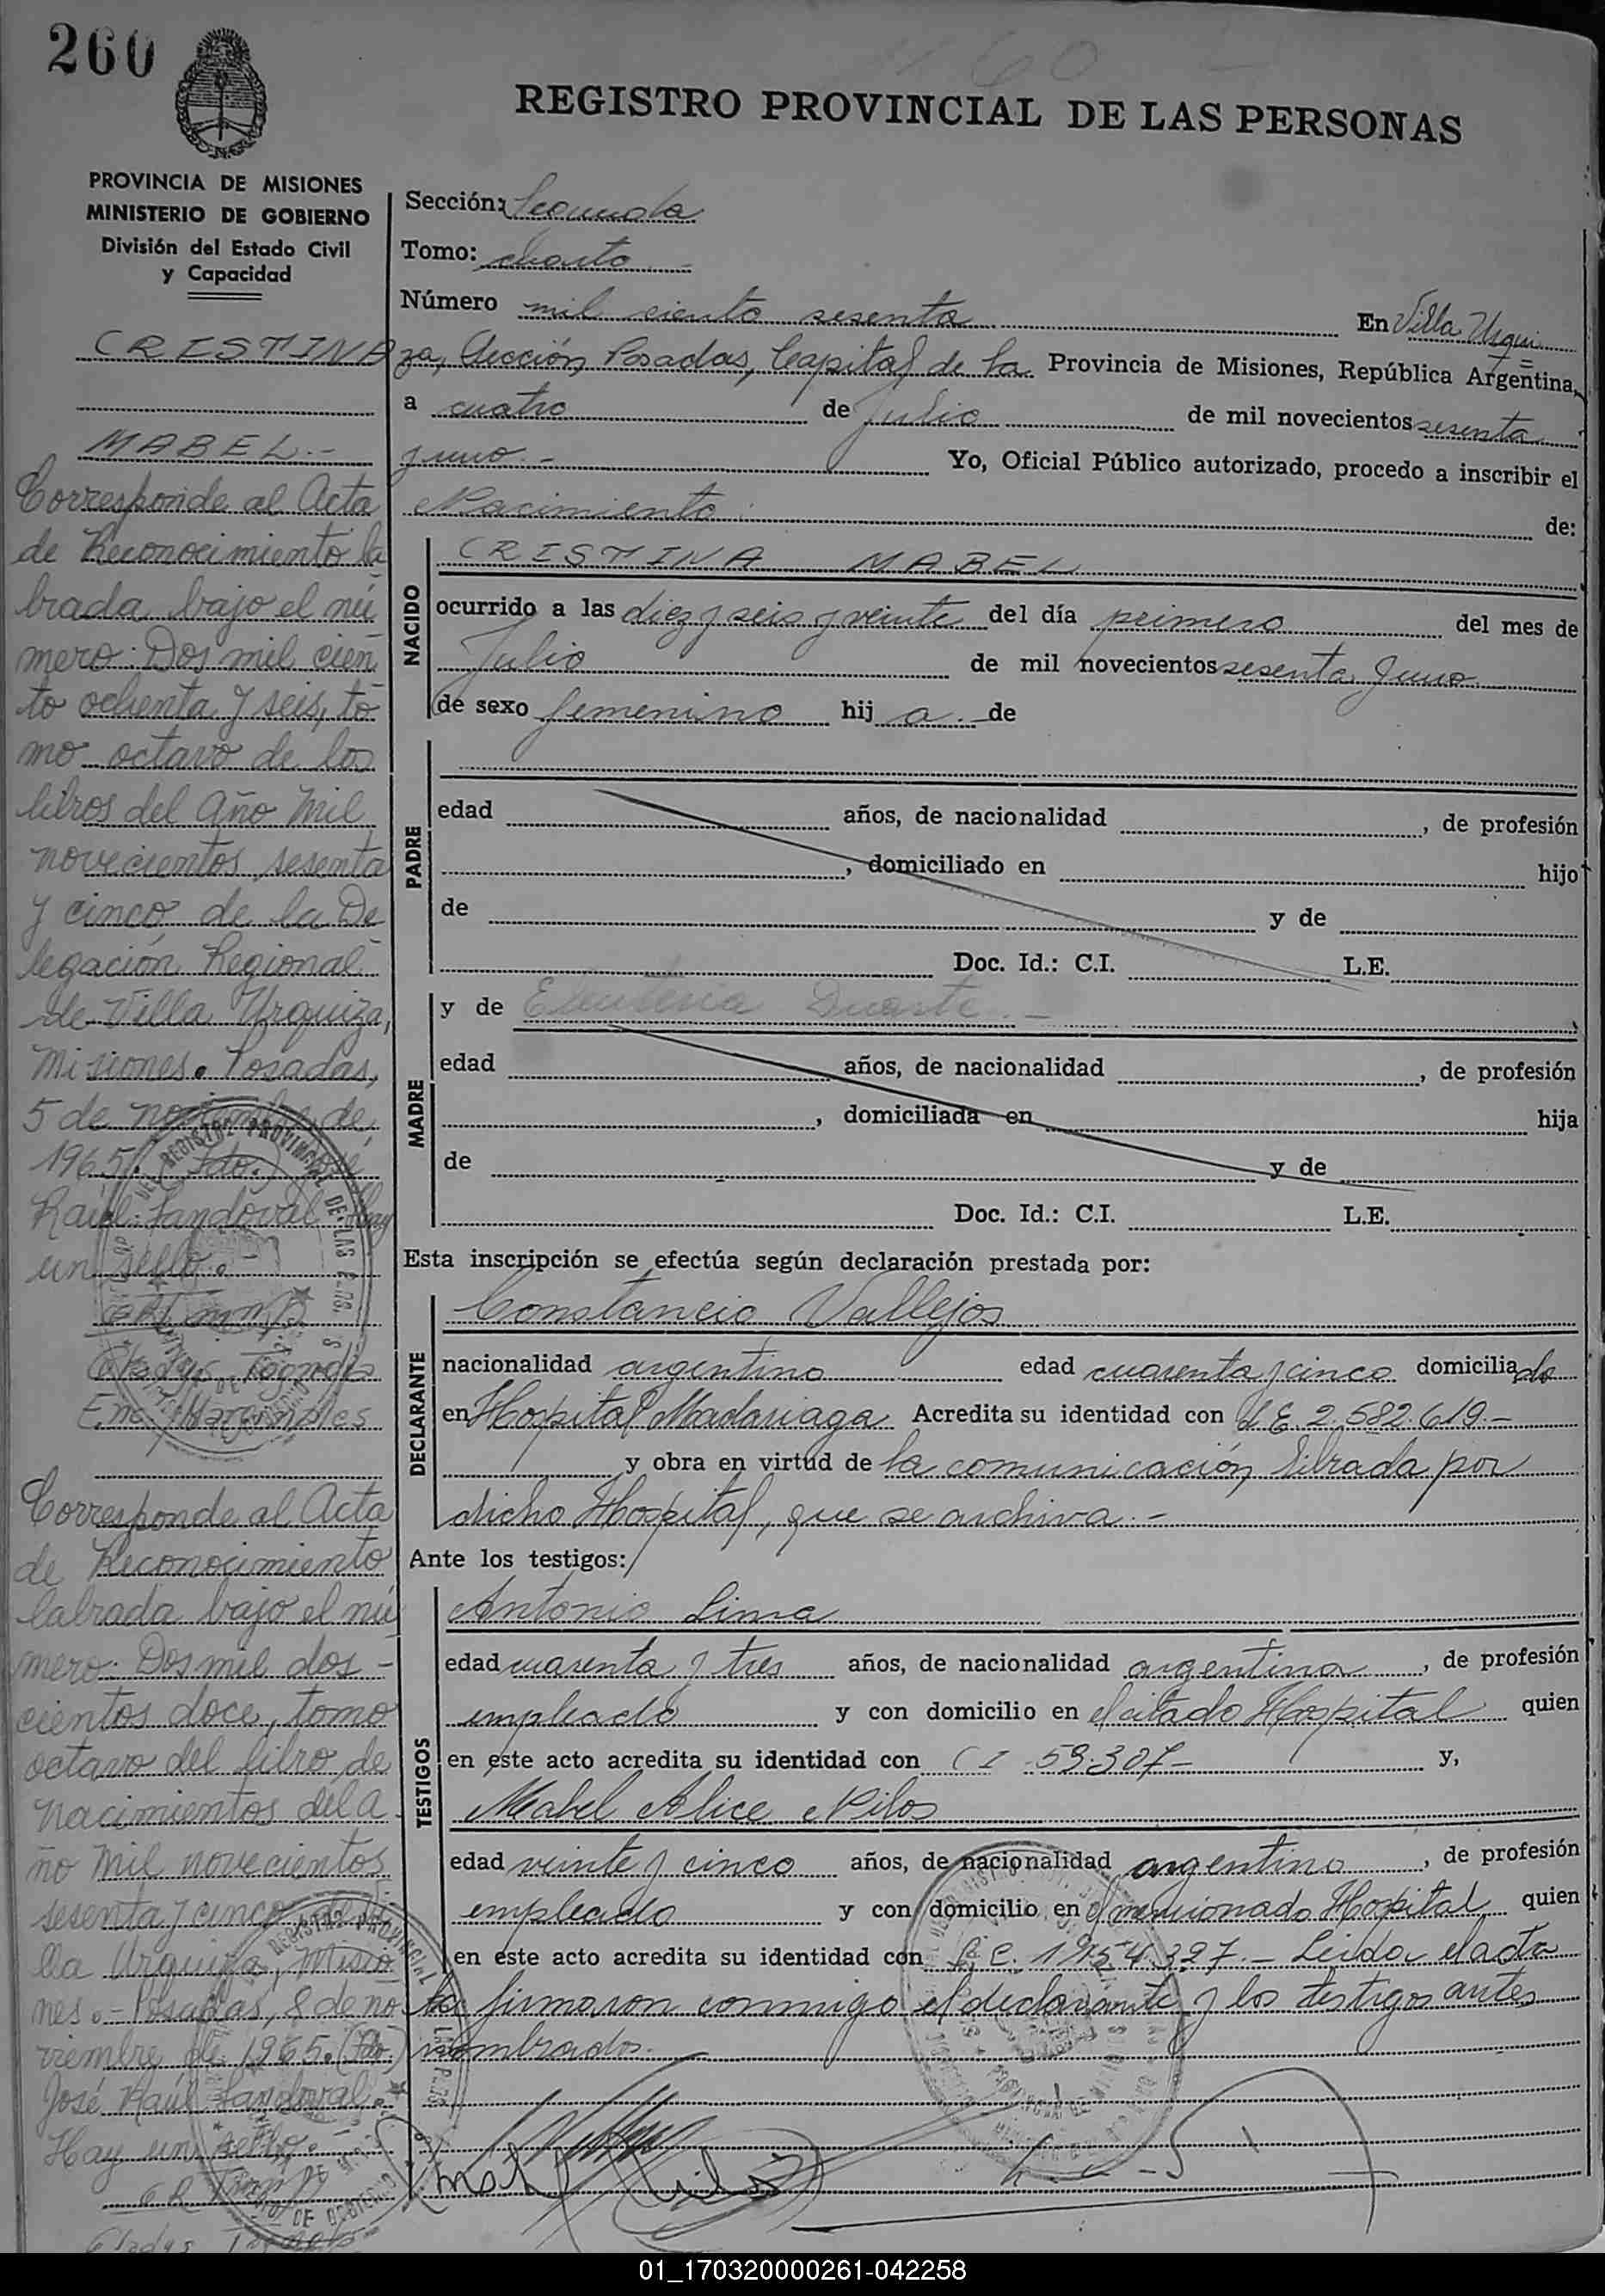 260
REGISTRO PROVINCIAL DE LAS PERSONAS
PROVINCIA DE MISIONES
MINISTERIO DE GOBIERNO
División del Estado Civil
y Capacidad
CRISTINA
MABEL.-
Corresponde al Acta
de Reconocimiento la
brada bajo el nú
mero: Dos mil cien
to ochenta y seis, to
mo octavo de los
libros del Año Mil
novecientos sesenta
y cinco de la De
legación Regional
de Villa Urquiza,
Misiones. Posadas,
5 de noviembre de
1965. Fdo.) José
Raúl Sandoval Hay
un sello.-
Enc. Marginales
Corresponde al Acta
de Reconocimiento
labrada bajo el nú
mero: Dos mil dos-
cientos doce, tomo
octavo del libro de
nacimientos del a
ño mil novecientos
sesenta y cinco de Vi
lla Urquiza, Misio
nes.- Posadas, 8 de no
viembre de 1965. (Fdo)
José Raúl Sandoval.
Hay un sello.-
Sección: Segunda
Tomo: cuarto
Número mil ciento sesenta En Villa Urqui
za, Sección Posadas, Capital de la Provincia de Misiones, República Argentina,
a cuatro de Julio de mil novecientos sesenta
y uno.- Yo, Oficial Público autorizado, procedo a inscribir el
Nacimiento de:
NACIDO
CRISTINA MABEL
ocurrido a las diez y seis y veinte del día primero del mes de
Julio de mil novecientos sesenta y uno
de sexo femenino hij a.- de
PADRE
edad años, de nacionalidad , de profesión
, domiciliado en hijo
de y de
Doc. Id.: C.I. L.E.
MADRE
y de Eleuteria Duarte.-
edad años, de nacionalidad , de profesión
, domiciliada en hija
de y de
Doc. Id.: C.I. L.E.
Esta inscripción se efectúa según declaración prestada por:
DECLARANTE
Constancio Vallejos
nacionalidad argentino edad cuarenta y cinco domiciliado
en Hospital Madariaga Acredita su identidad con L.E. 2.582.619.-
y obra en virtud de la comunicación librada por
dicho Hospital, que se archiva.-
Ante los testigos:
TESTIGOS
Antonio Lima
edad cuarenta y tres años, de nacionalidad argentina , de profesión
empleado y con domicilio en el citado Hospital quien
en este acto acredita su identidad con C I 59.307- y,
Mabel Alice Nilos
edad veinte y cinco años, de nacionalidad argentino , de profesión
empleado y con domicilio en el mencionado Hospital quien
en este acto acredita su identidad con L.C. 1.954.397.- Leída el acta
la firmaron conmigo el declarante y los testigos antes
nombrados.-
01_170320000261-042258